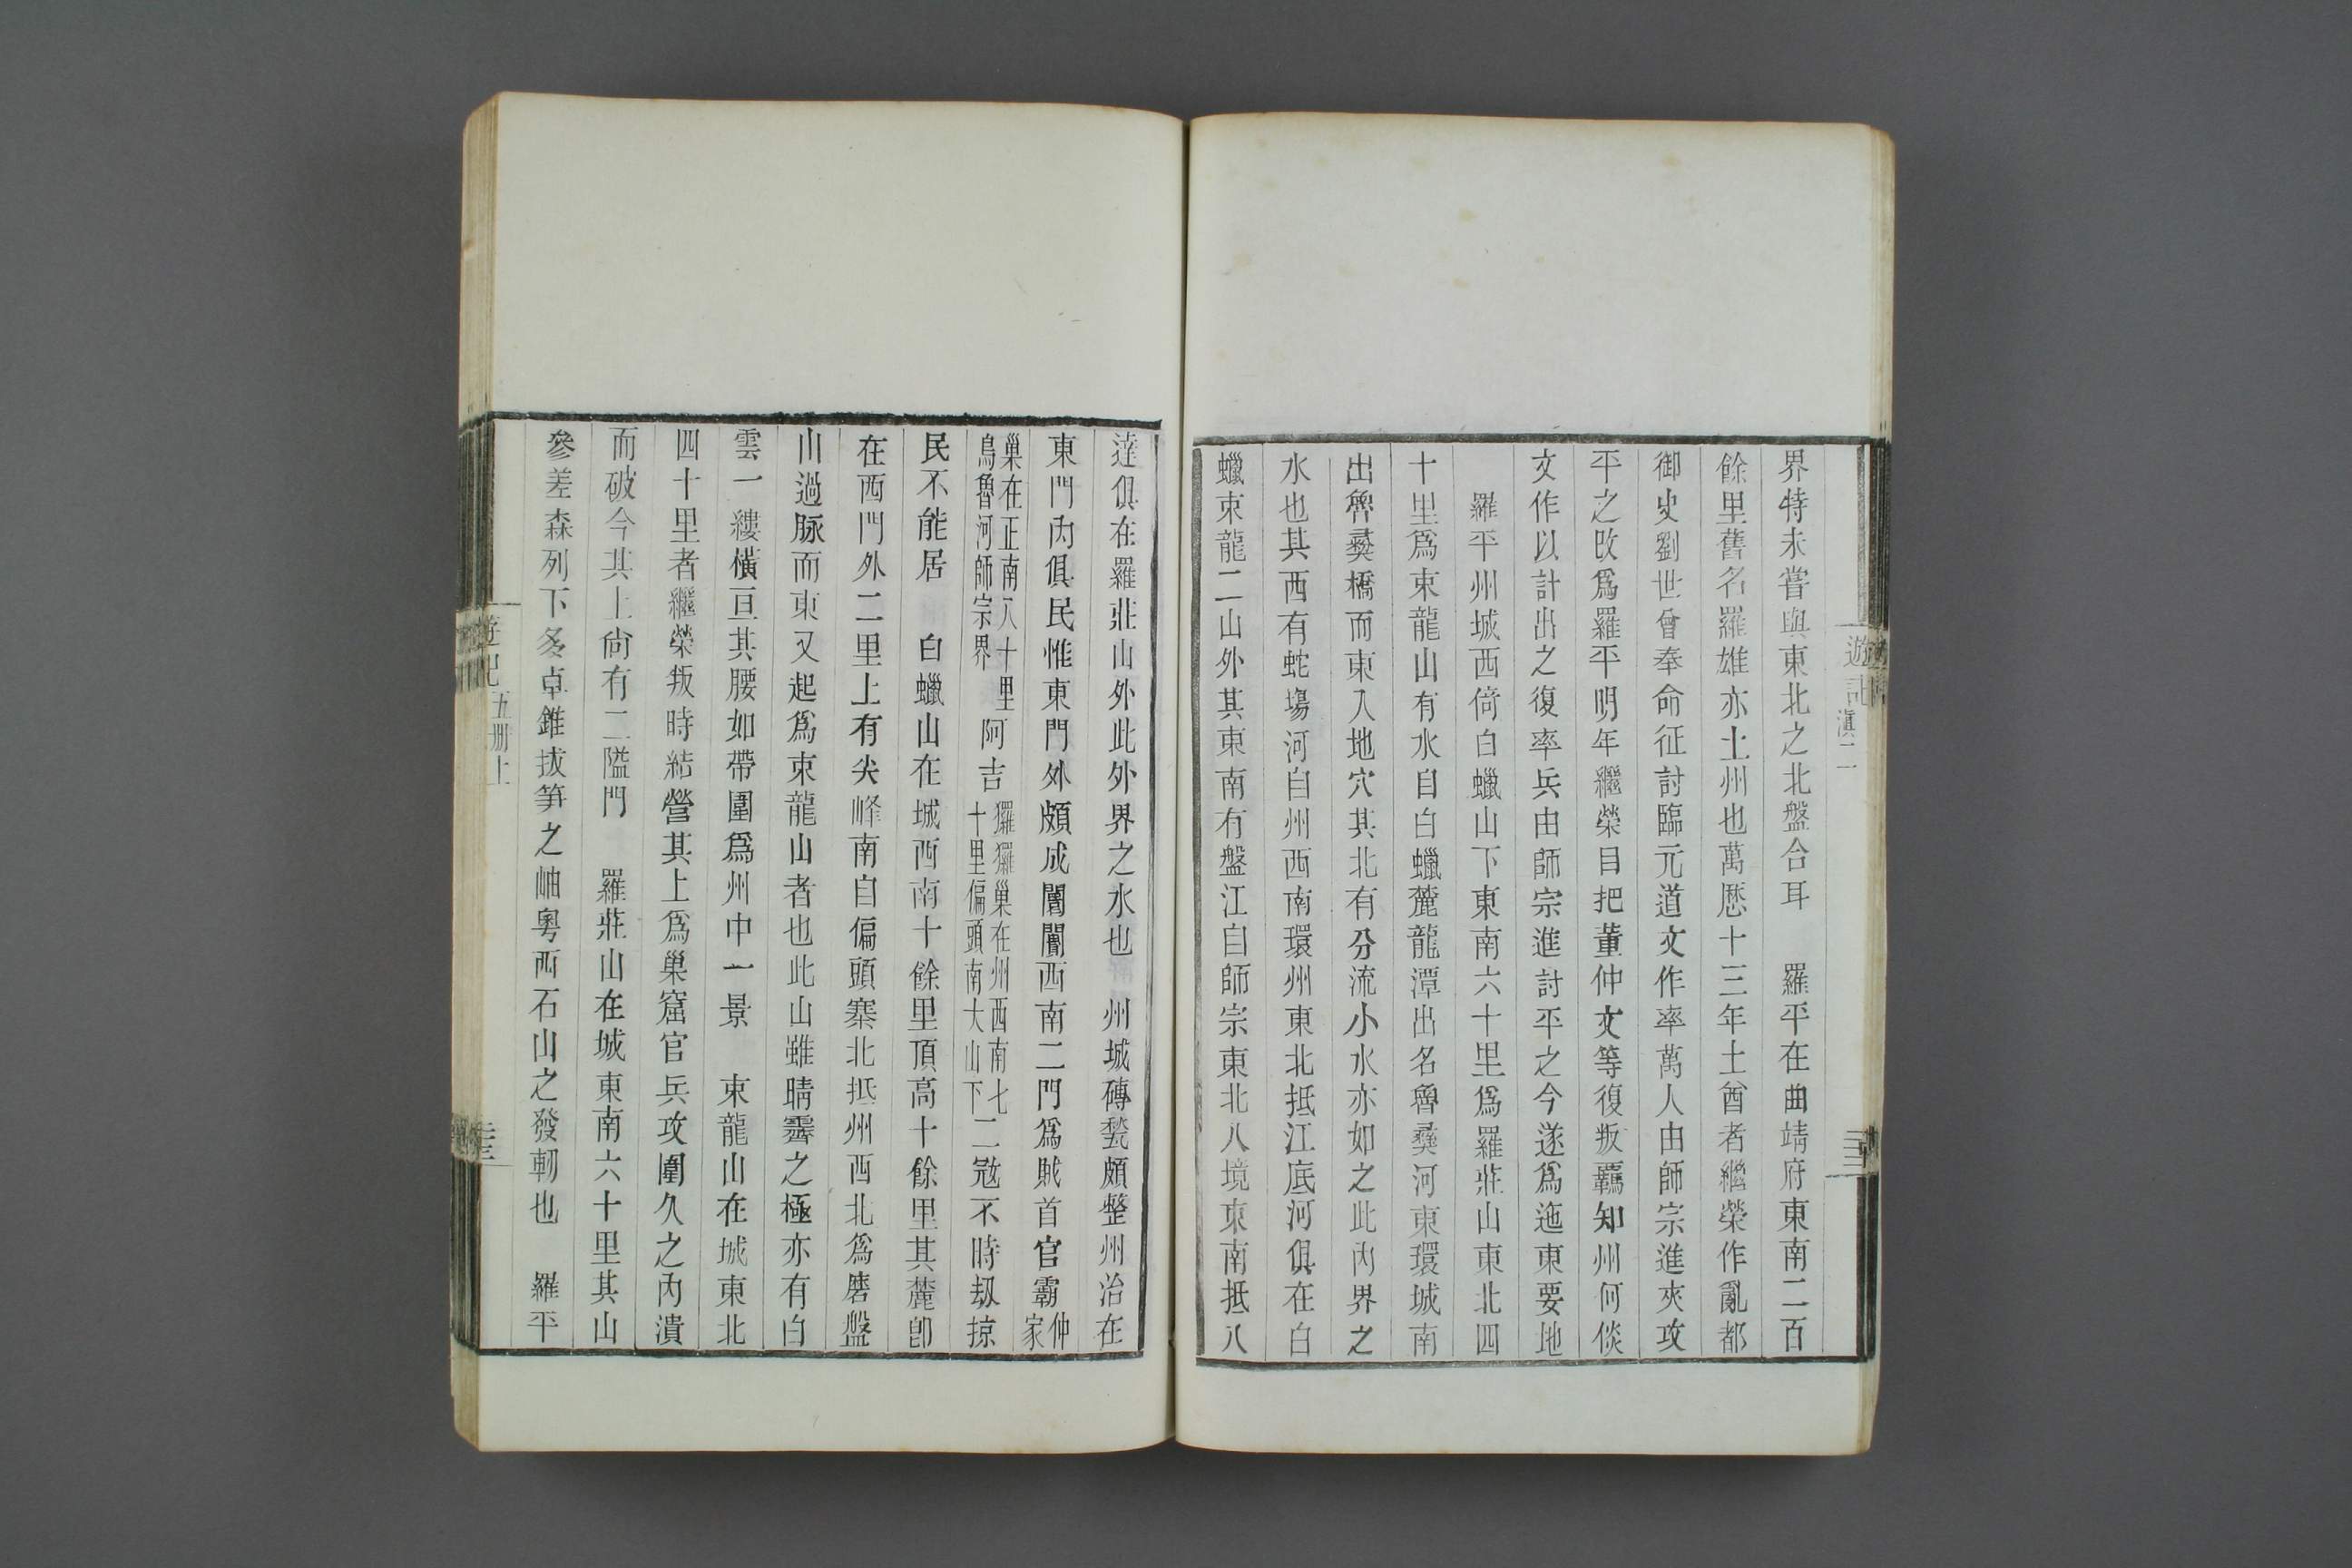 遊記 滇二
界特未嘗與東北之北盤合耳　羅平在曲靖府東南二百
餘里舊名羅雄亦土州也萬歷十三年土酋者繼榮作亂都
御史劉世曾奉命征討臨元道文作率萬人由師宗進夾攻
平之改爲羅平明年繼榮目把董仲文等復叛覊知州何倓
文作以計出之復率兵由師宗進討平之今遂爲迤東要地
羅平州城西倚白蠟山下東南六十里爲羅莊山東北四
十里爲束龍山有水自白蠟麓龍潭出名魯彜河東環城南
出魯彜橋而東入地穴其北有分流小水亦如之此內界之
水也其西有蛇塲河自州西南環州東北抵江底河俱在白
蠟束龍二山外其東南有盤江自師宗東北入境東南抵八
達俱在羅莊山外此外界之水也　州城磚甃頗整州治在
東門內俱民惟東門外頗成闤闠西南二門爲賊首官霸仲家
巢在正南八十里
烏魯河師宗界
阿吉
玀玀巢在州西南七
十里偏頭南大山下
二寇不時刼掠
民不能居　白蠟山在城西南十餘里頂高十餘里其麓卽
在西門外二里上有尖峰南自偏頭寨北抵州西北爲磨盤
山過脉而東又起爲束龍山者也此山雖晴霽之極亦有白
雲一縷橫亘其腰如帶圍爲州中一景　束龍山在城東北
四十里者繼榮叛時結營其上爲巢窟官兵攻圍久之內潰
而破今其上尙有二隘門　羅莊山在城東南六十里其山
參差森列下多卓錐拔筍之岫粵西石山之發軔也　羅平
遊記 五冊上